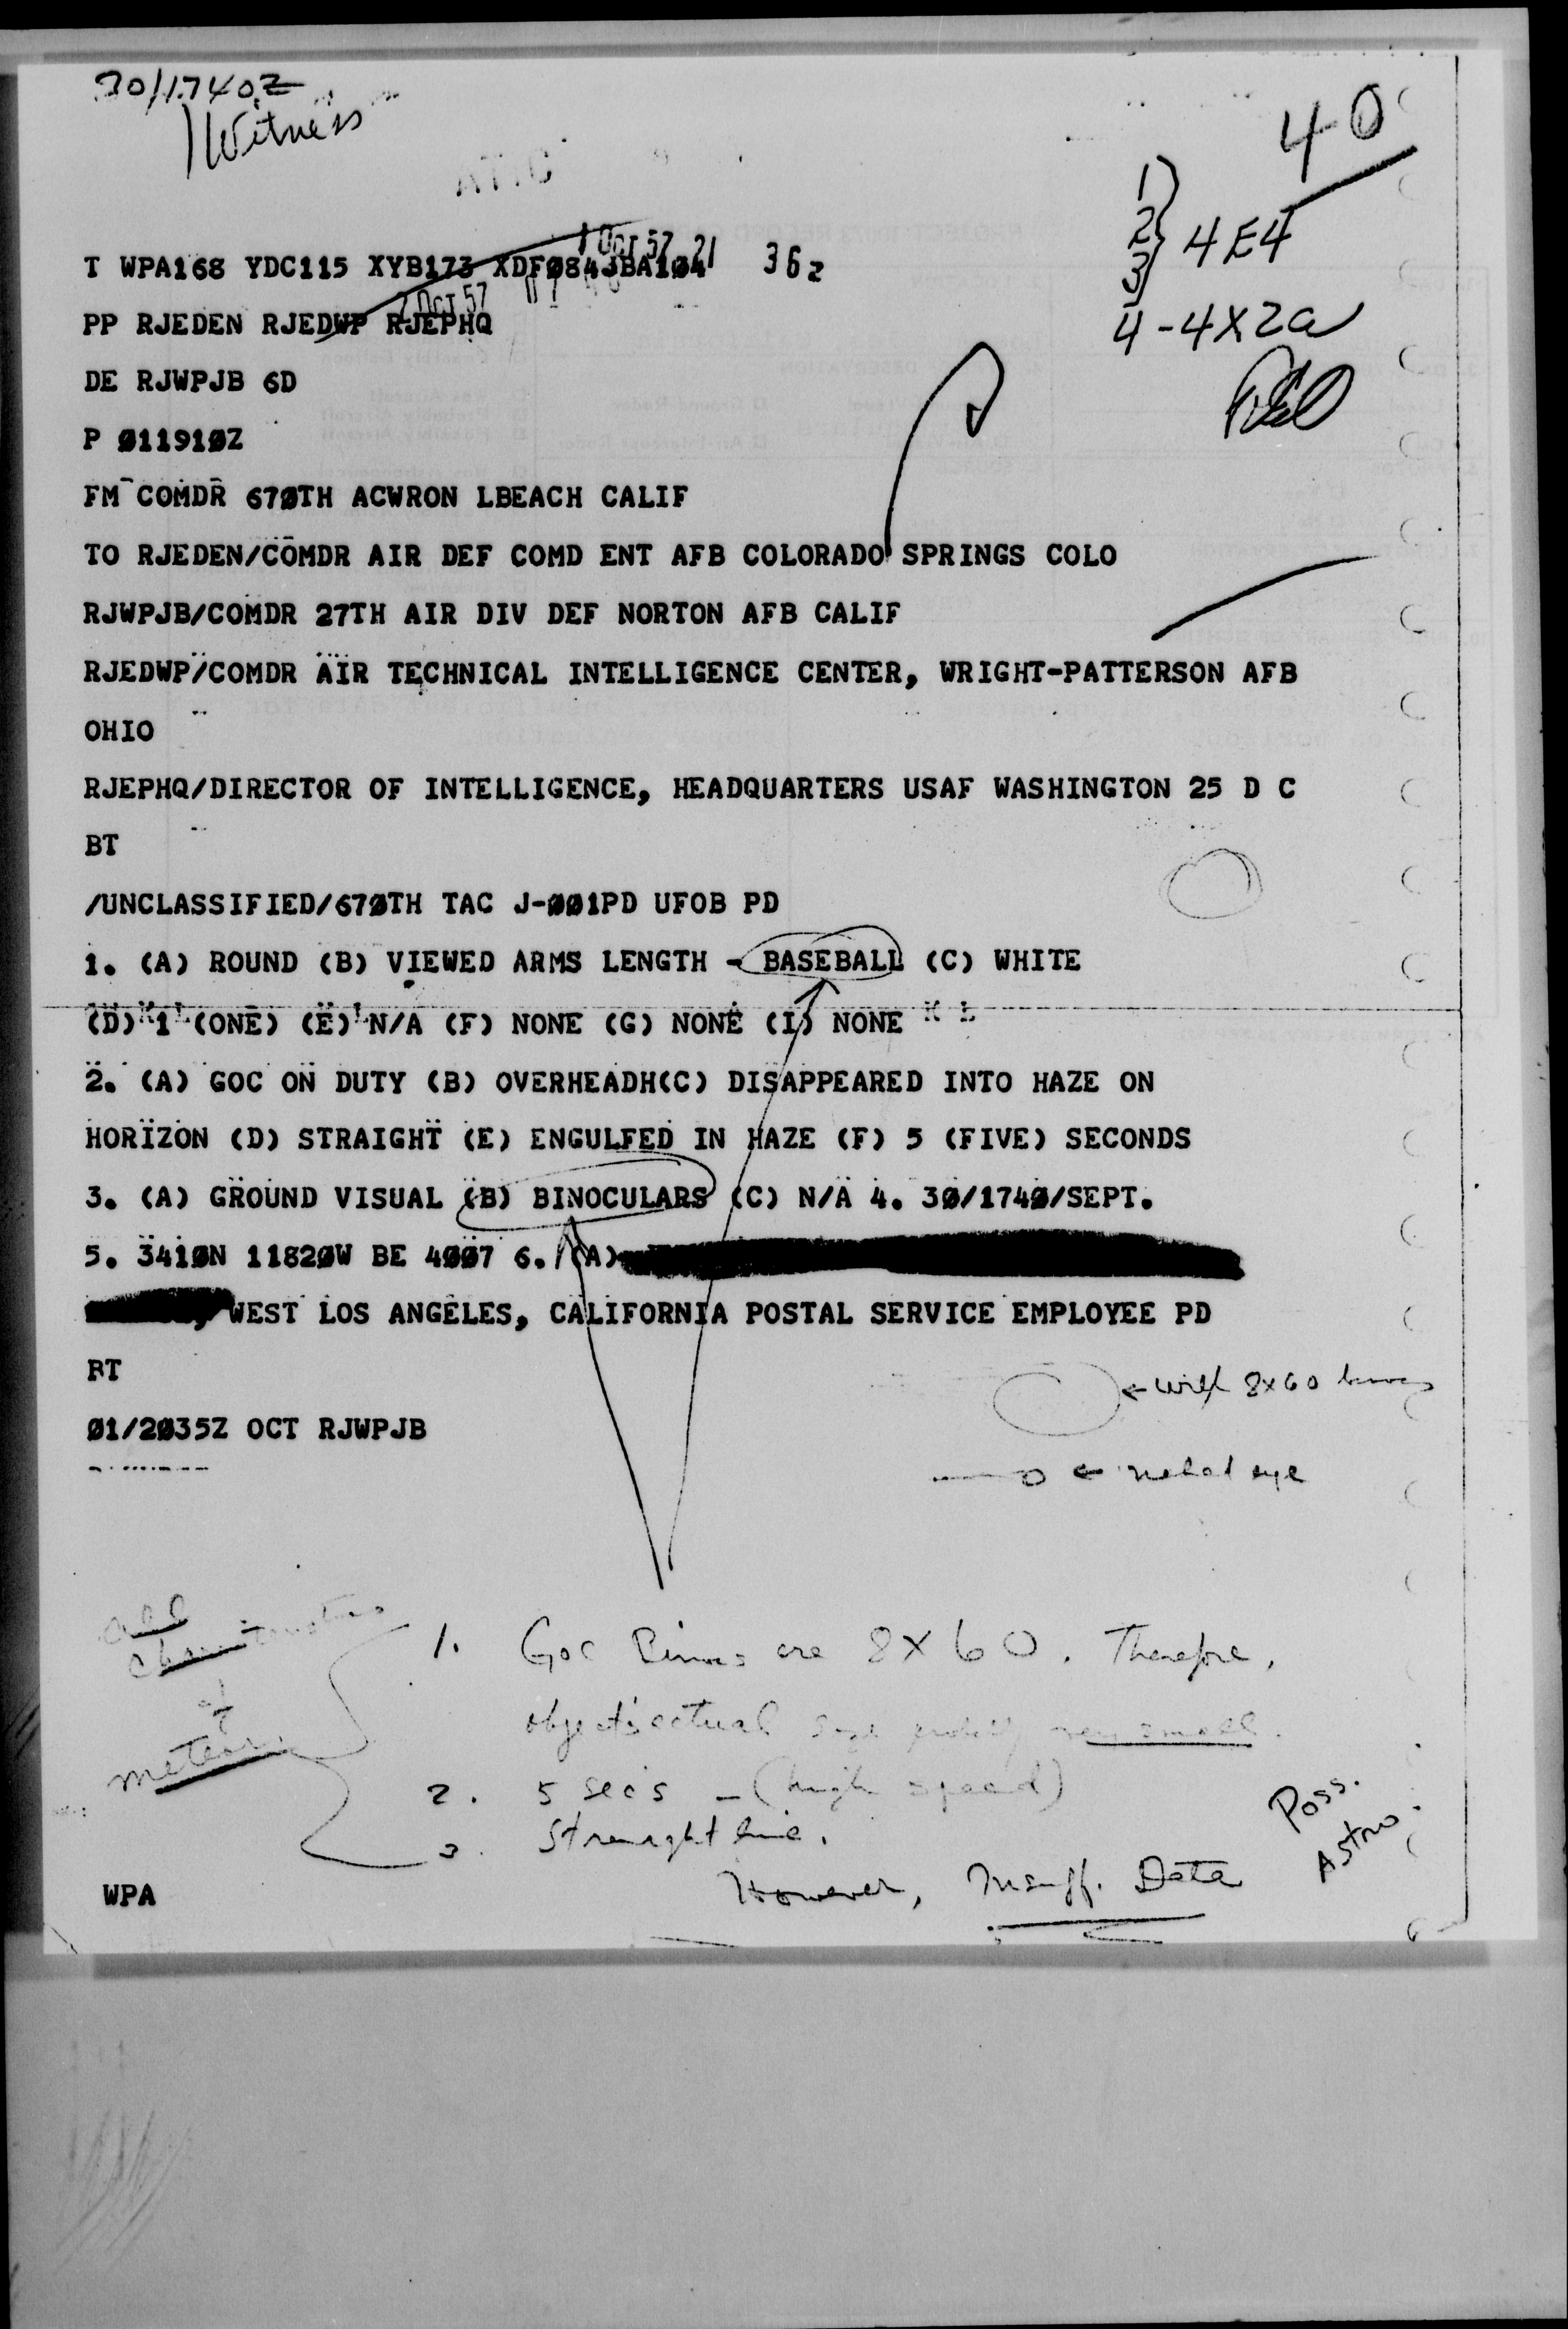 30/1740Z
1 Witness
40
ATIC
1
2 } 4E4
3
4-4X2a
1 OCT 57 21
36z
T WPA168 YDC115 XYB173 XDF084JBA104
2 OCT 57
PP RJEDEN RJEDWP RJEPHQ
DE RJWPJB 6D
P 011910Z
FM COMDR 670TH ACWRON LBEACH CALIF
TO RJEDEN/COMDR AIR DEF COMD ENT AFB COLORADO SPRINGS COLO
RJWPJB/COMDR 27TH AIR DIV DEF NORTON AFB CALIF
RJEDWP/COMDR AIR TECHNICAL INTELLIGENCE CENTER, WRIGHT-PATTERSON AFB
OHIO
RJEPHQ/DIRECTOR OF INTELLIGENCE, HEADQUARTERS USAF WASHINGTON 25 D C
BT
/UNCLASSIFIED/670TH TAC J-001PD UFOB PD
1. (A) ROUND (B) VIEWED ARMS LENGTH - BASEBALL (C) WHITE
(D) 1 (ONE) (E) N/A (F) NONE (G) NONE (I) NONE
2. (A) GOC ON DUTY (B) OVERHEADH(C) DISAPPEARED INTO HAZE ON
HORIZON (D) STRAIGHT (E) ENGULFED IN HAZE (F) 5 (FIVE) SECONDS
3. (A) GROUND VISUAL (B) BINOCULARS (C) N/A 4. 30/1740/SEPT.
5. 3410N 11820W BE 4007 6. (A)
WEST LOS ANGELES, CALIFORNIA POSTAL SERVICE EMPLOYEE PD
BT
← with 8x60
01/2035Z OCT RJWPJB
← naked eye
all
characteristics
of
meteor
1. GOC Binocs are 8X60. Therefore,
object's actual size probably very small.
2. 5 secs - (high speed)
3. Straight line.
Poss.
Astro.
However, Insuff. Data
WPA